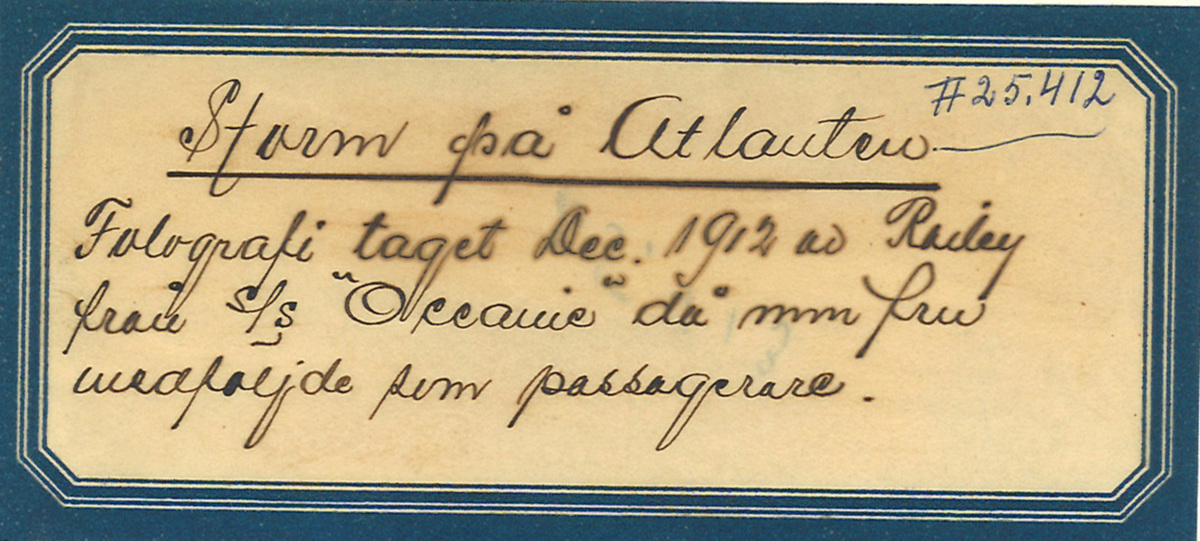 #25.412
Storm på Atlanten
Fotografi taget Dec. 1912 av Railey
från S/S "Oceanic" då min fru
medföljde som passagerare.